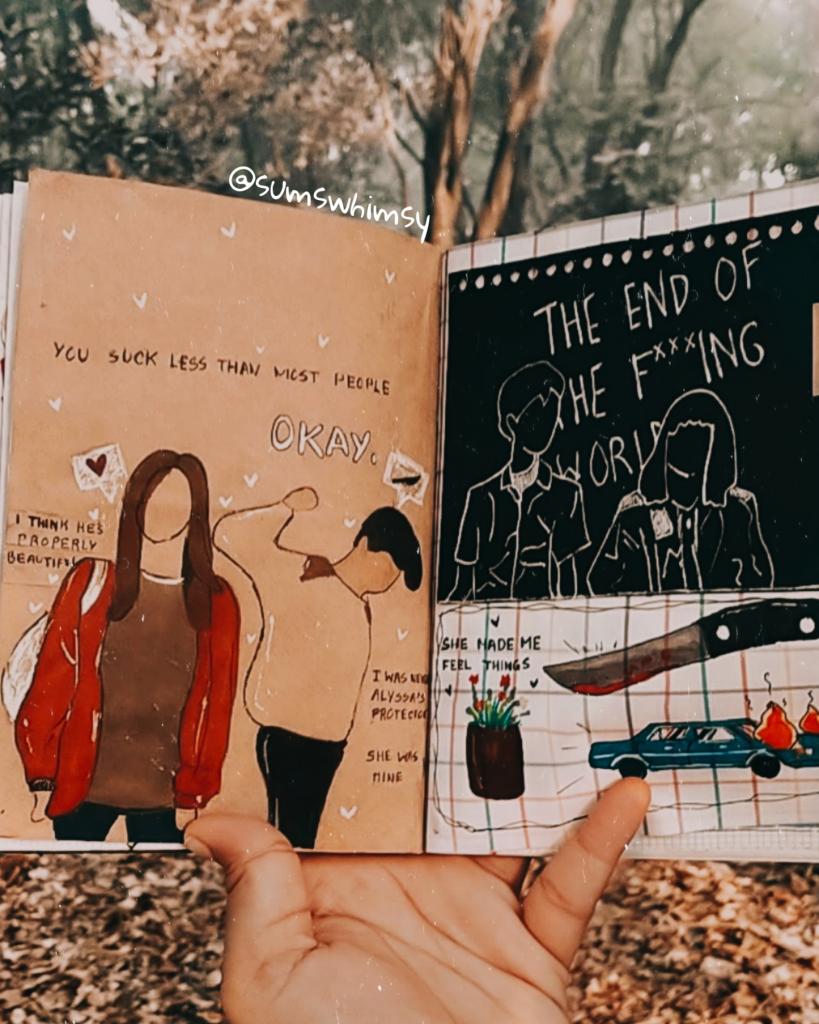 @sumswhimsy
YOU SUCK LESS THAN MOST PEOPLE
OKAY.
I THINK HE'S
PROPERLY
BEAUTIFUL
I WAS
ALYSSA'S
PROTECTOR
SHE WAS
MINE
THE END OF
THE F***ING
WORLD
SHE MADE ME
FEEL THINGS